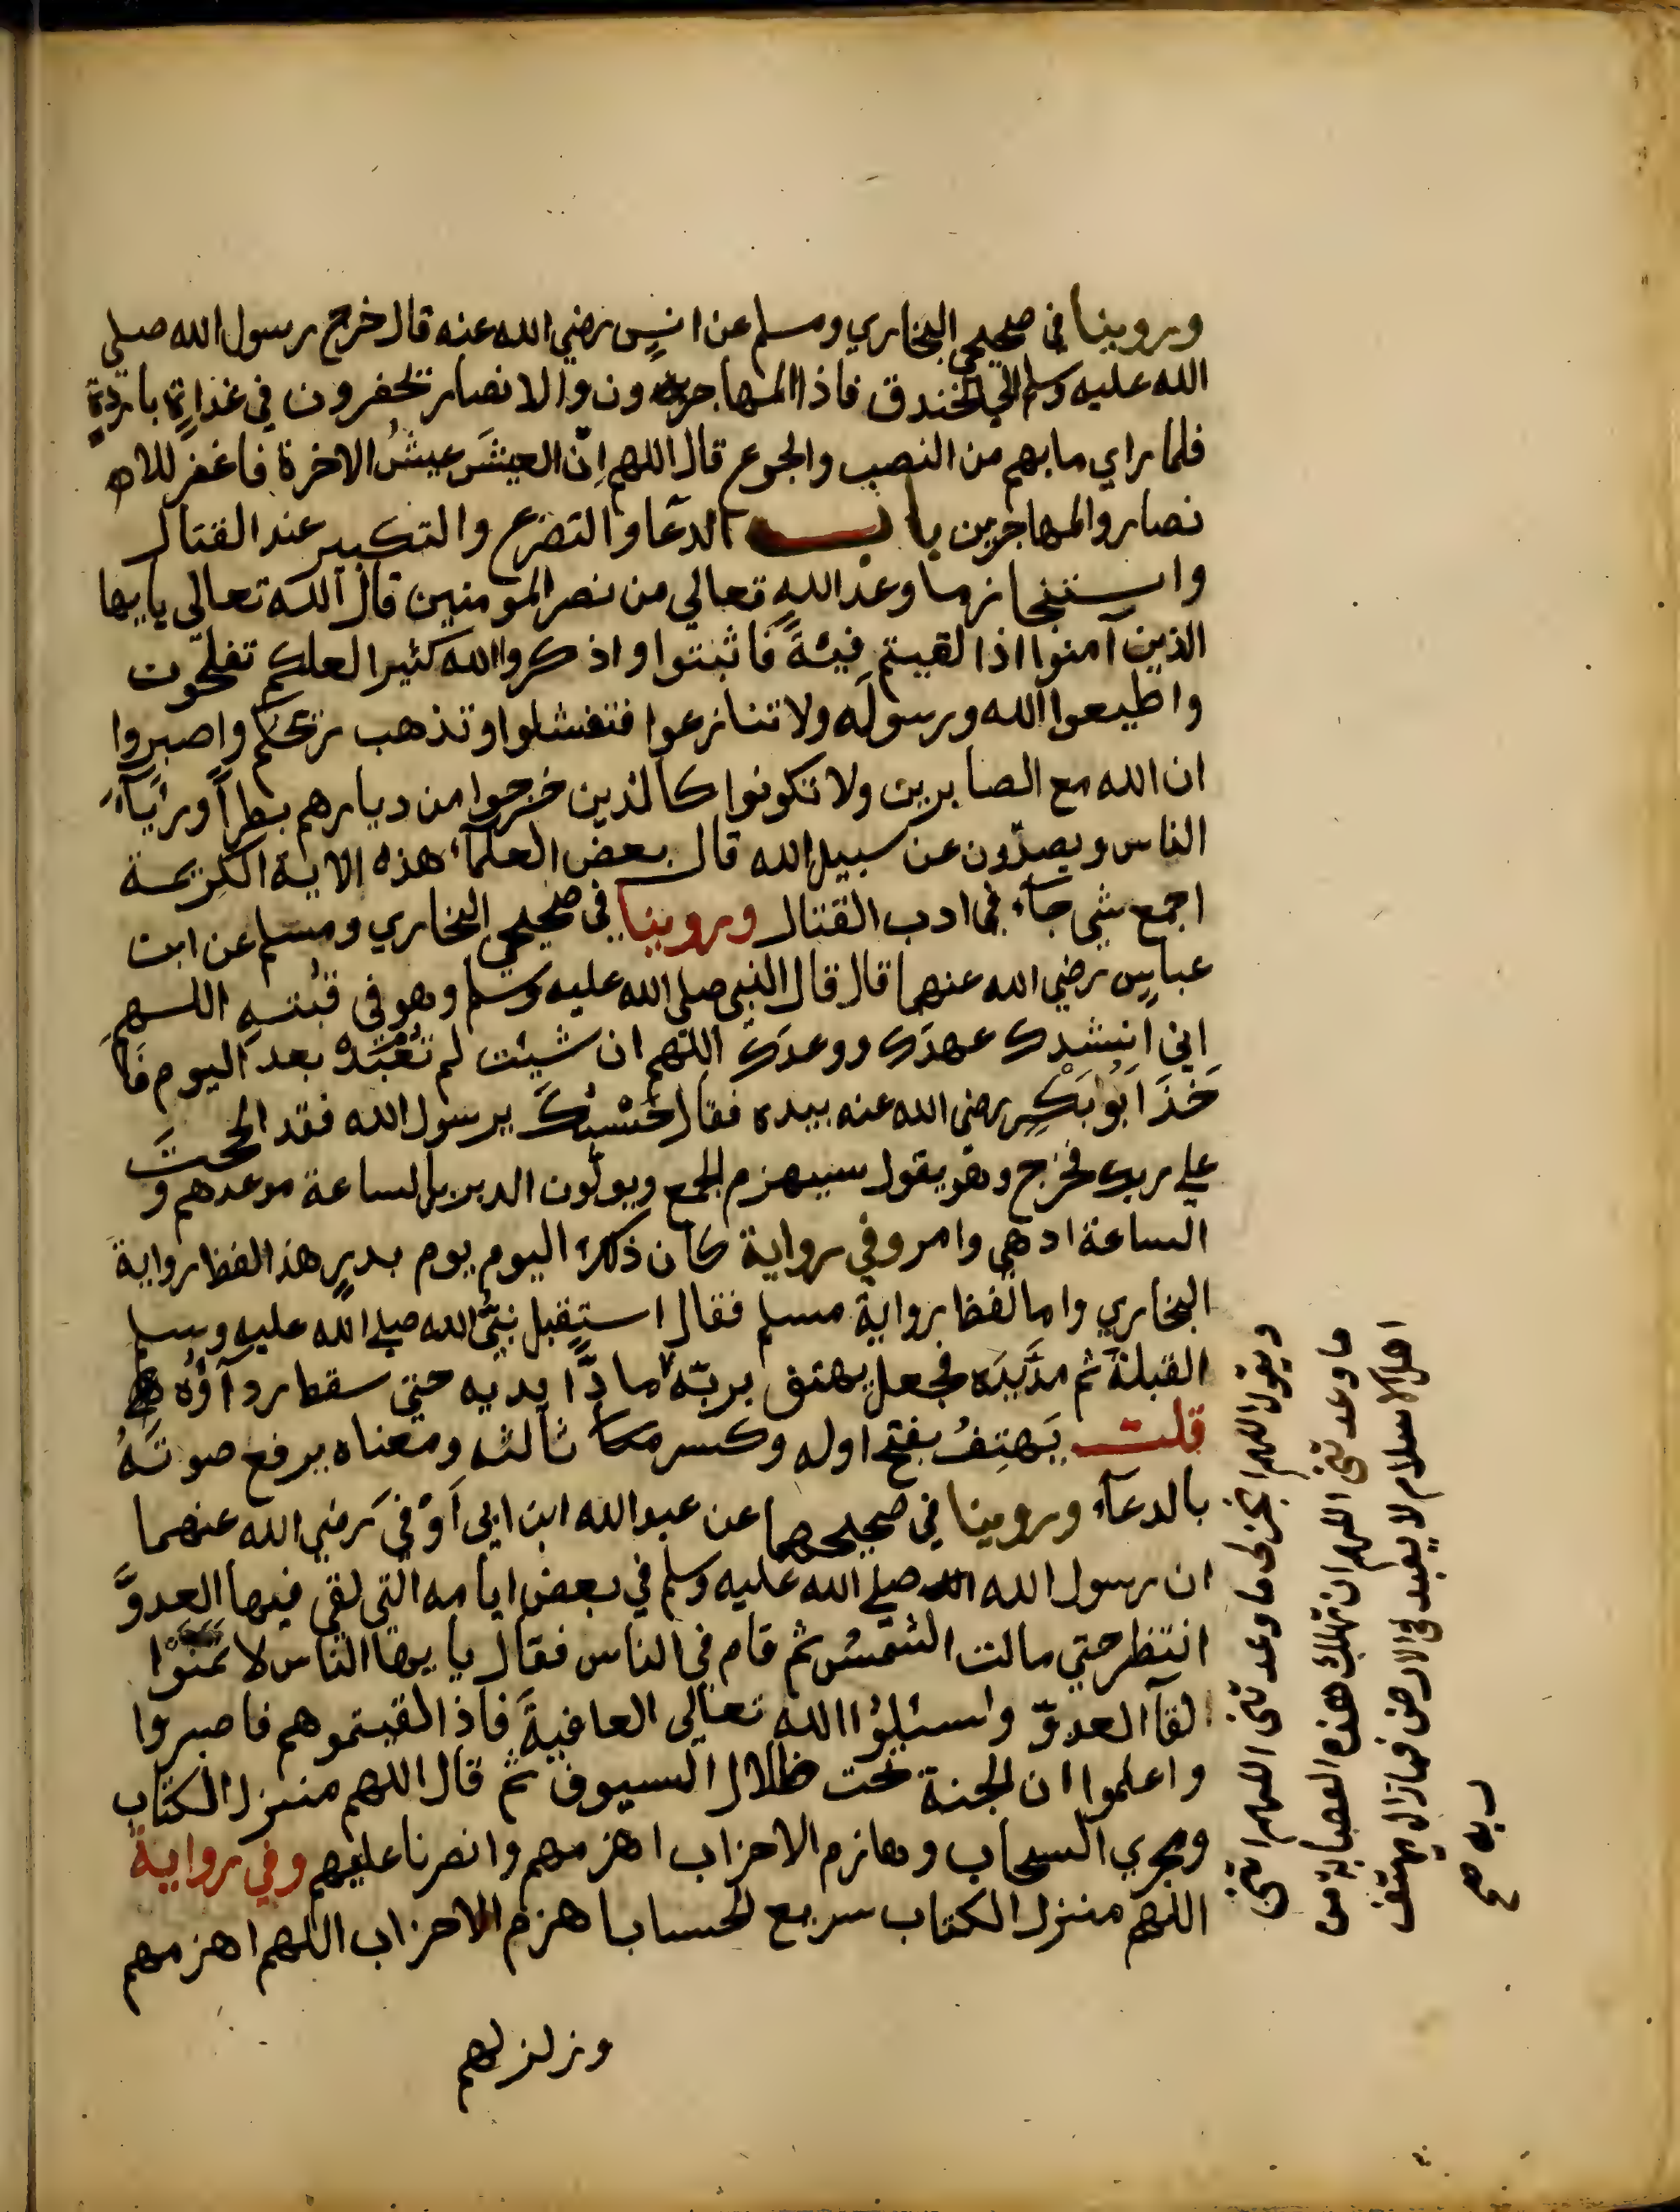 وروينا في صحيحي البخاري ومسلم عن انسٍ رضي الله عنه قال خرج رسول الله صلي
الله عليه وسلم الي الخندق فاذا المهاجرون والانصار تحفرون في غذاةٍ باردةٍ
فلما راي ما بهم من النصب والجوع قال اللهم اِنّ العيشَ عيشُ الاخرة فاغفر للا
نصار والمهاجرين باب الدعآ والتضرع والتكبير عند القتال
واستنجاز ما وعد الله تعالي من نصر المومنين قال الله تعالي يايها
الذين آمنوا اذا لقيتم فيئةً فاثبتوا واذكروا الله كثيرا لعلكم تفلحون
واطيعوا الله ورسوله ولا تنازعوا فتفشلوا وتذهب ريحكم واصبروا
ان الله مع الصابرين ولا تكونوا كالذين خرجوا من ديارهم بطراً ورئآءَ
الناس ويصدّون عن سبيل الله قال بعض العلمآء هذه الاية الكريمة
اجمع شي جآء في ادب القتال وروينا في صحيحي البخاري ومسلم عن ابن
عباسٍ رضي الله عنهما قال قال النبي صلي الله عليه وسلم وهو في قبُتهِ اللهم
اني انشدك عهدَك ووعدَك اللهم ان شيئت لم تُعْبَدْ بعد اليوم فَاَ
خَذَ اَبُو بَكْرٍ رضي الله عنه بيده فقال حَسْبُكَ يرسول الله فقد الححتَ
علي ربك فخرج وهو يقول سيهزم الجمع ويولّون الدبر بل الساعة موعدهم و
الساعة ادهي وامر وفي رواية كان ذلك اليوم يوم بدرٍ هذا لفظ رواية
البخاري واما لفظ رواية مسلم فقال استقبل نبيُّ الله صلي الله عليه وسلم
القبلةَ ثم مدَّ يَدَه فجعل يهتف بربّه مادًّا يديه حتي سقط ردآؤُه
قلت يَهتِفُ بفتح اوله وكسر ثالثه ومعناه يرفع صوتَهُ
بالدعآء وروينا في صحيحهما عن عبدالله ابن ابي اَوْفي رضي الله عنهما
ان رسول الله صلي الله عليه وسلم في بعض ايامه التي لقي فيها العدوَّ
انتظر حتي مالت الشمسُ ثم قام في الناس فقال يا يها الناس لا تمنَّوْا
لقآ العدوّ واسئلؤا الله تعالي العافيةَ فاذا لقيتموهم فاصبروا
واعلموا ان الجنة تحت ظلال السيوف ثم قال اللهم منزل الكتاب
ومجري السحاب وهازم الاحزاب اهزمهم وانصرنا عليهم وفي رواية
اللهم منزل الكتاب سريع الحساب اهزم الاحزاب اللهم اهزمهم
وزلزلهم
ويقول اللهم انجز لي ما وعدتني اللهم اتني
ما وعدتني اللهم ان تهلك هذه العصابة من
اهل الاسلام لا يعبد في الارض فما زال يهتف
بربه صح